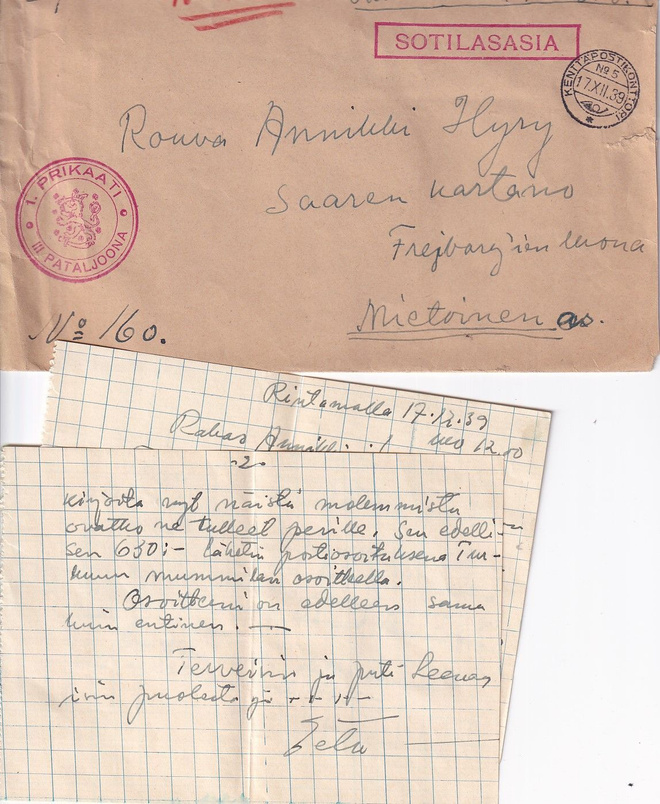 SOTILASASIA
KENTTÄPOSTIKONTTORI
No 5
17.XII.39
Rouva Annikki Hyry
Saaren kartano
Frejbarg'ien luona
Mietoinen as.
1. PRIKAATI
III PATALJOONA
No 160.
Rintamalla 17.12.39
klo 12.00
Rakas Annikki
-2-
Kirjoita nyt näistä molemmista
ovatko ne tulleet perille. Sen edelli-
sen 630:- lähetin postiosoituksena Tur-
kuun mummilan osoitteella.
Osoitteeni on edelleen sama
kuin entinen.
Terveisin ja
isin puolesta